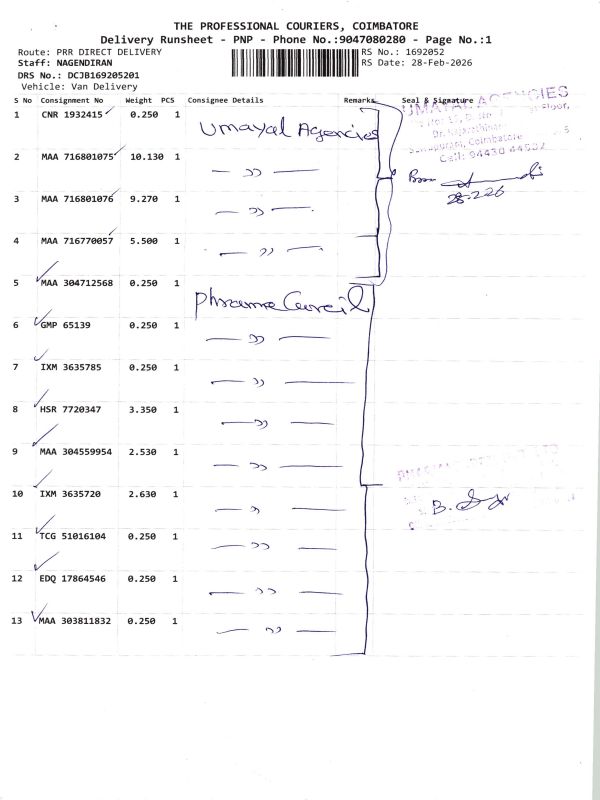 THE PROFESSIONAL COURIERS, COIMBATORE
Delivery Runsheet - PNP - Phone No.:9047080280 - Page No.:1
Route: PRR DIRECT DELIVERY RS No.: 1692052
Staff: NAGENDIRAN RS Date: 28-Feb-2026
DRS No.: DCJB169205201
Vehicle: Van Delivery
S No Consignment No Weight PCS Consignee Details Remarks Seal & Signature
UMAYAL AGENCIES
1 CNR 1932415 0.250 1 Umayal Agencies
Floor,
Coimbatore
Cell: 94430 44532
2 MAA 716801075 10.130 1
— ,, —
28-2-26
3 MAA 716801076 9.270 1
— ,, —
4 MAA 716770057 5.500 1
— ,, —
5 MAA 304712568 0.250 1
6 GMP 65139 0.250 1
— ,, —
7 IXM 3635785 0.250 1
— ,, —
8 HSR 7720347 3.350 1
— ,, —
9 MAA 304559954 2.530 1
— ,, —
10 IXM 3635720 2.630 1
— ,, —
B.
11 TCG 51016104 0.250 1
— ,, —
12 EDQ 17864546 0.250 1
— ,, —
13 MAA 303811832 0.250 1
— ,, —